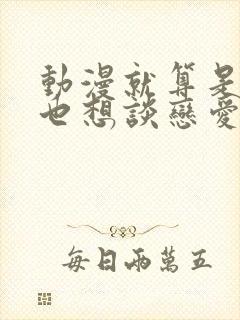 動漫就算是
也想談戀愛
每日兩萬五